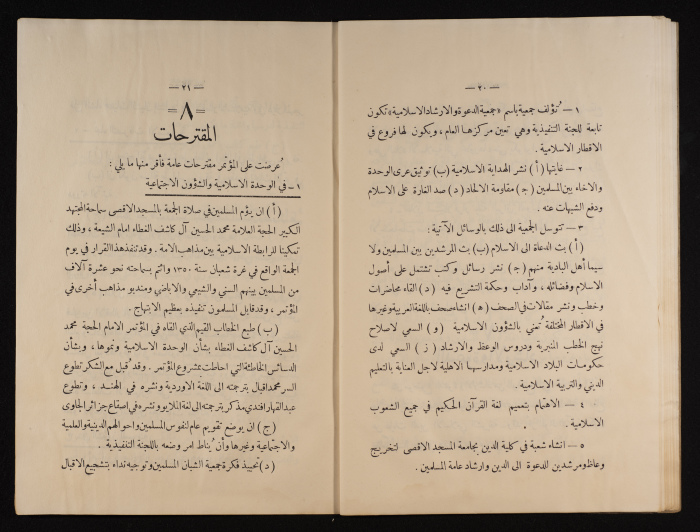 — ٢٠ —
١ — تُؤلف جمعية باسم «جمعية الدعوة والارشاد الاسلامية» تكون
تابعة للجنة التنفيذية وهي تعين مركزها العام، ويكون لها فروع في
الاقطار الاسلامية .
٢ — غايتها (أ) نشر الهداية الاسلامية (ب) توثيق عرى الوحدة
والاخاء بين المسلمين (ج) مقاومة الالحاد (د) صد الغارة على الاسلام
ودفع الشبهات عنه .
٣ — تتوسل الجمعية الى ذلك بالوسائل الآتية :
(أ) بث الدعاة الى الاسلام (ب) بث المرشدين بين المسلمين ولا
سيما أهل البادية منهم (ج) نشر رسائل وكتب تشتمل على أصول
الاسلام وفضائله، وآداب وحكمة التشريع فيه (د) القاء محاضرات
وخطب ونشر مقالات في الصحف (ه) انشاء صحف باللغة العربية وغيرها
في الاقطار المختلفة تُعني بالشؤون الاسلامية (و) السعي لاصلاح
نهج الخطب المنبرية ودروس الوعظ والارشاد (ز) السعي لدى
حكومات البلاد الاسلامية ومدارسها الاهلية لاجل العناية بالتعليم
الديني والتربية الاسلامية .
٤ — الاهتمام بتعميم لغة القرآن الحكيم في جميع الشعوب
الاسلامية .
٥ — انشاء شعبة في كلية الدين بجامعة المسجد الاقصى لتخريج
وعاظ ومرشدين للدعوة الى الدين وارشاد عامة المسلمين .
— ٢١ —
= ٨ =
المقترحات
عُرضت على المؤتمر مقترحات عامة فأقر منها ما يلي :
١ — في الوحدة الاسلامية والشؤون الاجتماعية
(أ) ان يؤم المسلمين في صلاة الجمعة بالمسجد الاقصى سماحة المجتهد
الكبير الحجة العلامة محمد الحسين آل كاشف الغطاء امام الشيعة، وذلك
تمكينا للرابطة الاسلامية بين مذاهب الامة . وقد تنفذ هذا القرار في يوم
الجمعة الواقع في غرة شعبان سنة ١٣٥٠ وائتم بسماحته نحو عشرة آلاف
من المسلمين بينهم السني والشيعي والاباضي ومندبو مذاهب أخرى في
المؤتمر، وقد قابل المسلمون تنفيذه بعظيم الابتهاج .
(ب) طبع الخطاب القيم الذي القاه في المؤتمر الامام الحجة محمد
الحسين آل كاشف الغطاء بشأن الوحدة الاسلامية ونموها، وبشأن
الدسائس الخاطئة التي احاطت بمشروع المؤتمر . وقد قُبل مع الشكر تطوع
السر محمد اقبال بترجمته الى اللغة الاوردية ونشره في الهند، وتطوع
عبد القهار افندي مذكر بترجمته الى لغة الملايو ونشره في اصقاع جزائر الجاوى
(ج) ان يوضع تقويم عام لنفوس المسلمين واحوالهم الدينية والعلمية
والاجتماعية وغيرها وأن يُناط امر وضعه باللجنة التنفيذية .
(د) تحبيذ فكرة جمعية الشبان المسلمين وتوجيه نداء بتشجيع الاقبال